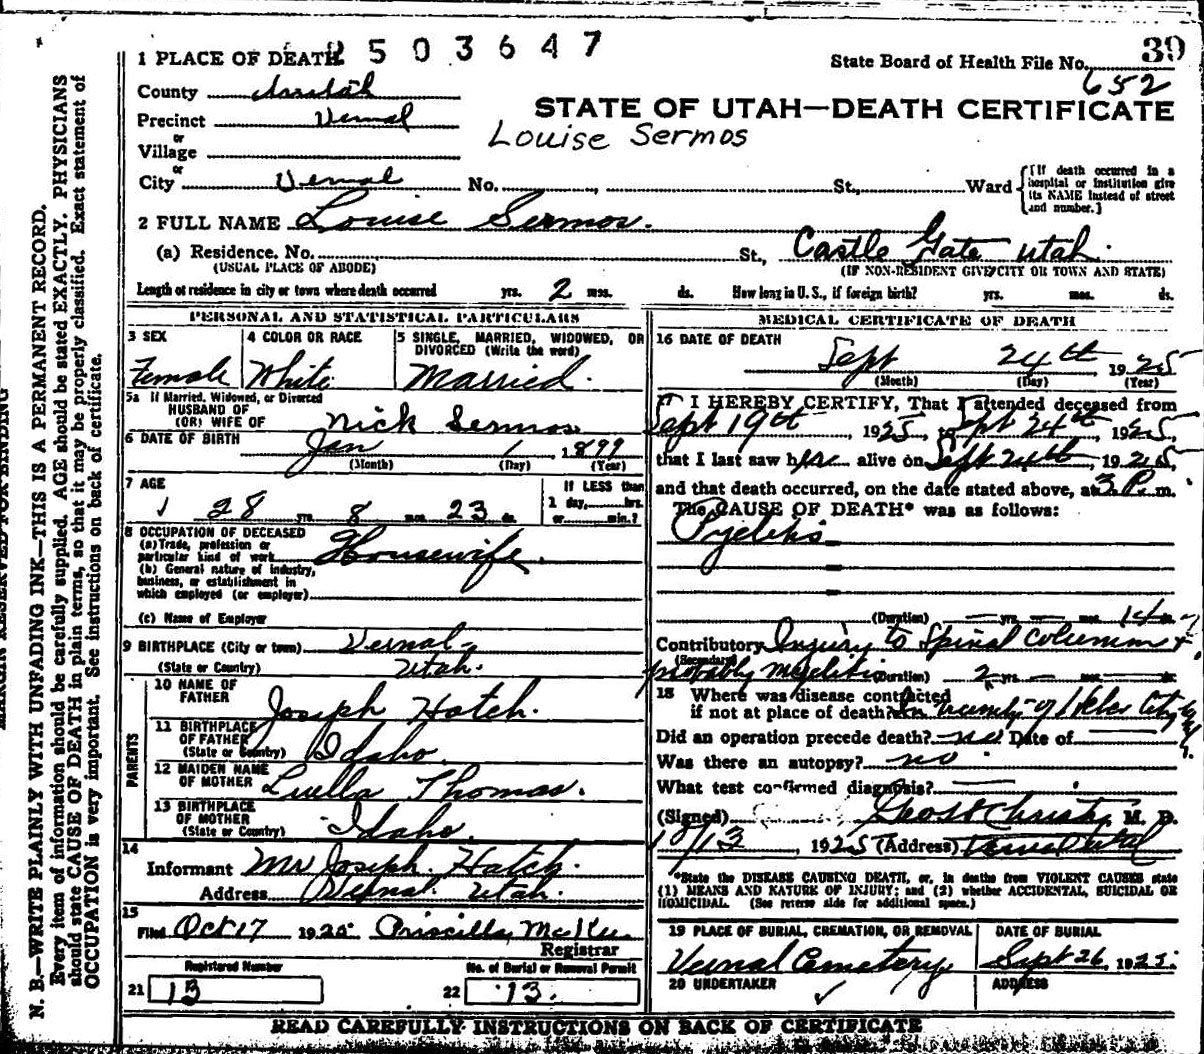 2503647
39
1 PLACE OF DEATH
State Board of Health File No. 652
County
STATE OF UTAH—DEATH CERTIFICATE
Precinct Vernal
Louise Sermos
or
Village
or
City Vernal No. , St., Ward
[If death occurred in a hospital or institution give its NAME instead of street and number.]
2 FULL NAME Louise Sermos.
(a) Residence. No. St., Castle Gate Utah.
(USUAL PLACE OF ABODE) (IF NON-RESIDENT GIVE CITY OR TOWN AND STATE)
Length of residence in city or town where death occurred yrs. 2 mos. ds. How long in U. S., if foreign birth? yrs. mos. ds.
PERSONAL AND STATISTICAL PARTICULARS
3 SEX
Female
4 COLOR OR RACE
White
5 SINGLE, MARRIED, WIDOWED, OR
DIVORCED (Write the word)
Married.
5a If Married, Widowed, or Divorced
HUSBAND OF
(OR) WIFE OF Nick Sermos
6 DATE OF BIRTH Jan 1 1899
(Month) (Day) (Year)
7 AGE
28 yrs. 8 mos. 23 ds.
If LESS than
1 day, hrs.
or min.?
8 OCCUPATION OF DECEASED
(a) Trade, profession or
particular kind of work Housewife.
(b) General nature of industry,
business, or establishment in
which employed (or employer)
(c) Name of Employer
9 BIRTHPLACE (City or town) Vernal,
(State or Country) Utah.
PARENTS
10 NAME OF
FATHER Joseph Hatch.
11 BIRTHPLACE
OF FATHER
(State or Country) Idaho.
12 MAIDEN NAME
OF MOTHER Luella Thomas.
13 BIRTHPLACE
OF MOTHER
(State or Country) Idaho.
14
Informant Mr Joseph Hatch.
Address Vernal Utah.
15
Filed Oct 17 1925 Priscilla McKee
Registrar
Registered Number
21 13
No. of Burial or Removal Permit
22 13.
MEDICAL CERTIFICATE OF DEATH
16 DATE OF DEATH
Sept 24th 1925
(Month) (Day) (Year)
17 I HEREBY CERTIFY, That I attended deceased from
Sept 19th, 1925, to Sept 24th, 1925,
that I last saw her alive on Sept 24th, 1925,
and that death occurred, on the date stated above, at 3 P. m.
The CAUSE OF DEATH* was as follows:
Pyelitis
(Duration) yrs. mos. 14 ds.
Contributory Injury to Spinal column &
(Secondary) probably myelitis (Duration) 2
18 Where was disease contracted
if not at place of death? In vicinity of Heber City
Did an operation precede death? no Date of
Was there an autopsy? no
What test confirmed diagnosis?
(Signed) Christy, M. D.
10/13, 1925 (Address) Vernal Utah
*State the DISEASE CAUSING DEATH, or, in deaths from VIOLENT CAUSES state
(1) MEANS AND NATURE OF INJURY; and (2) whether ACCIDENTAL, SUICIDAL OR
HOMICIDAL. (See reverse side for additional space.)
19 PLACE OF BURIAL, CREMATION, OR REMOVAL
Vernal Cemetery
DATE OF BURIAL
Sept 26, 1925.
20 UNDERTAKER
ADDRESS
READ CAREFULLY INSTRUCTIONS ON BACK OF CERTIFICATE
MARGIN RESERVED FOR BINDING
N. B.—WRITE PLAINLY WITH UNFADING INK—THIS IS A PERMANENT RECORD.
Every item of information should be carefully supplied. AGE should be stated EXACTLY. PHYSICIANS
should state CAUSE OF DEATH in plain terms, so that it may be properly classified. Exact statement of
OCCUPATION is very important. See instructions on back of certificate.